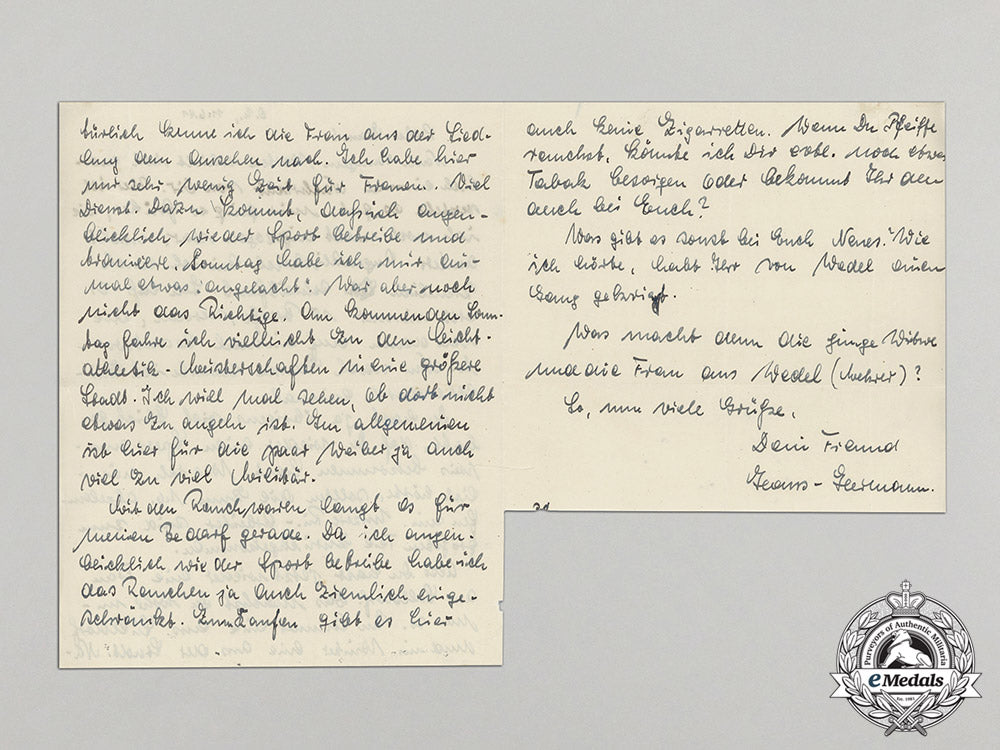 türlich kenne ich die Frau aus der Sied-
lung dem Ansehen nach. Ich habe hier
nur sehr wenig Zeit für Frauen. Viel
Dienst. Dazu kommt, daß ich augen-
blicklich wieder Sport betreibe und
trainiere. Sonntag habe ich mir ein-
mal etwas „angelacht". War aber noch
nicht das Richtige. Am kommenden Sonn-
tag fahre ich vielleicht zu den Leicht-
athletik-Meisterschaften in eine größere
Stadt. Ich will mal sehen, ob dort nicht
etwas zu angeln ist. Im allgemeinen
ist hier für die paar Weiber ja auch
viel zu viel Militär.
Mit den Rauchwaren langt es für
meinen Bedarf gerade. Da ich augen-
blicklich wieder Sport betreibe habe ich
das Rauchen ja auch ziemlich einge-
schränkt. Zum Kaufen gibt es hier
auch keine Zigarretten. Wenn Du Pfeiffe
rauchst, könnte ich Dir evtl. noch etwas
Tabak besorgen oder bekommt Ihr den
auch bei Euch?
Was gibt es sonst bei Euch Neues? Wie
ich hörte, habt Ihr von Wedel einen
gekriegt.
Was macht denn die junge Witwe
und die Frau aus Wedel ( )?
So, nun viele Grüße,
Dein Freund
Hans-Hermann.
Purveyors of Authentic Militaria
eMedals
Est. 1985